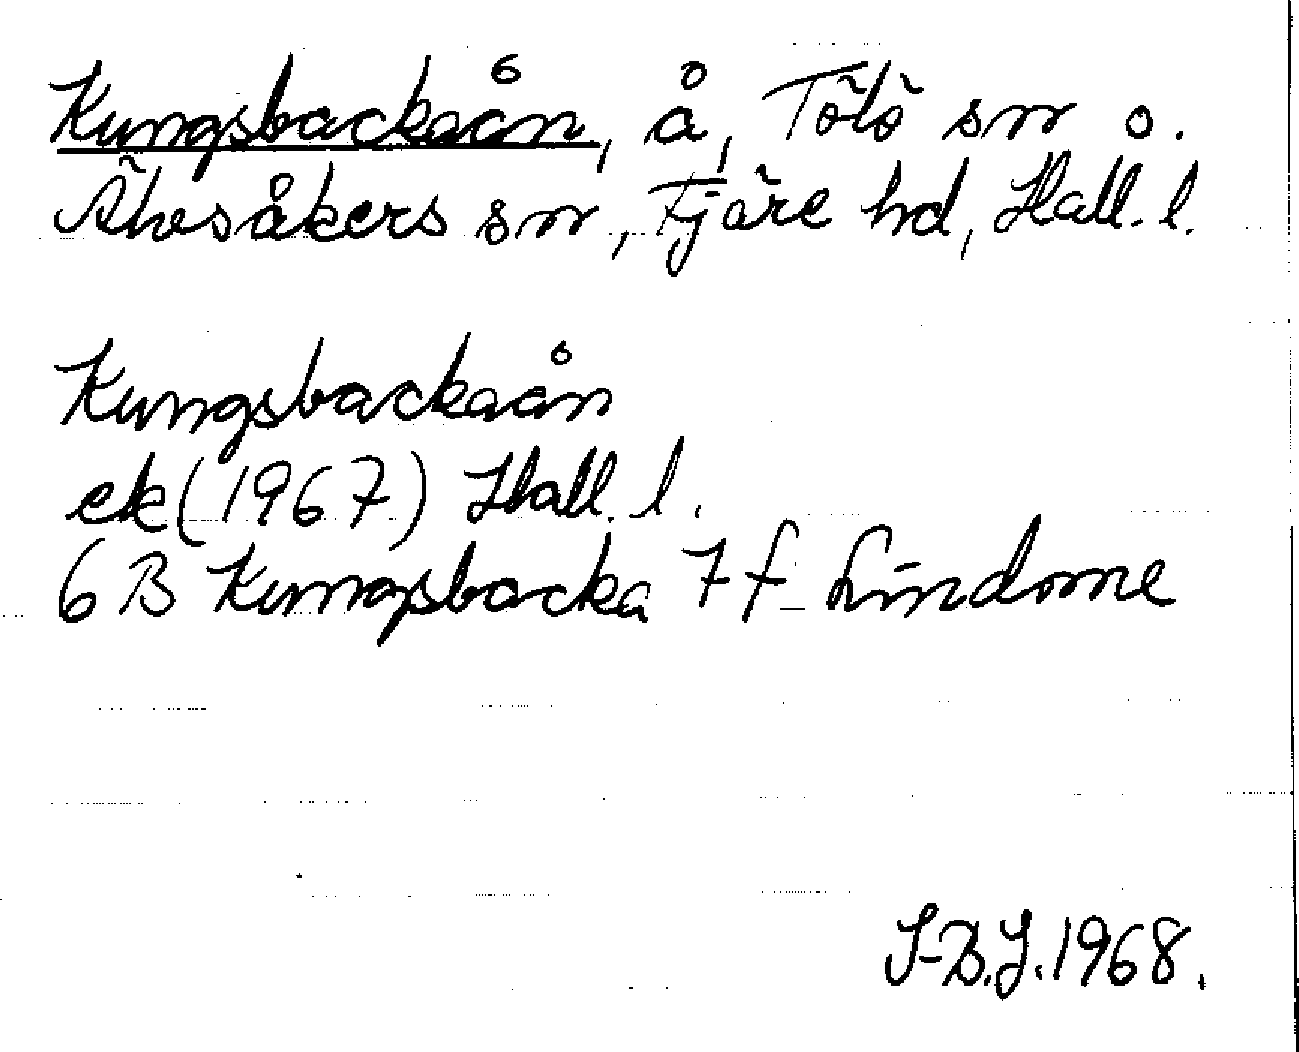 Kungsbackaån, å, Tölö sn o.
Älvsåkers sn, Fjäre hd, Hall. l.
Kungsbackaån
ek (1967) Hall. l.
6 B Kungsbacka 7 f Lindome
S-B.J. 1968.